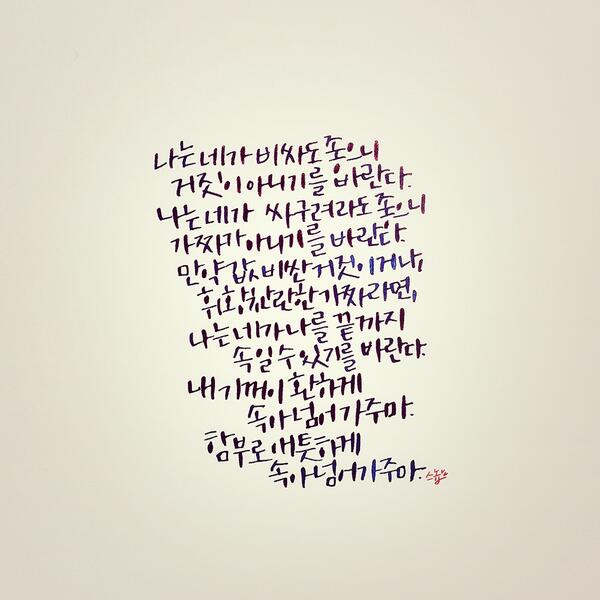 나는 네가 비싸도 좋으니
거짓이 아니기를 바란다.
나는 네가 싸구려라도 좋으니
가짜가 아니기를 바란다.
만약 값비싼 거짓이거나,
휘황찬란한 가짜라면,
나는 네가 나를 끝까지
속일 수 있기를 바란다.
내 기꺼이 환하게
속아 넘어가주마.
함부로 애틋하게
속아 넘어가주마.